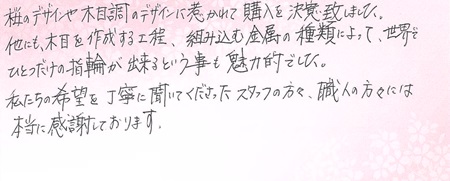 桜のデザインや木目調のデザインに惹かれて購入を決意致しました。
他にも、木目を作成する工程、組み込む金属の種類によって、世界で
ひとつだけの指輪が出来るという事も魅力的でした。
私たちの希望を丁寧に聞いてくださったスタッフの方々、職人の方々には
本当に感謝しております。